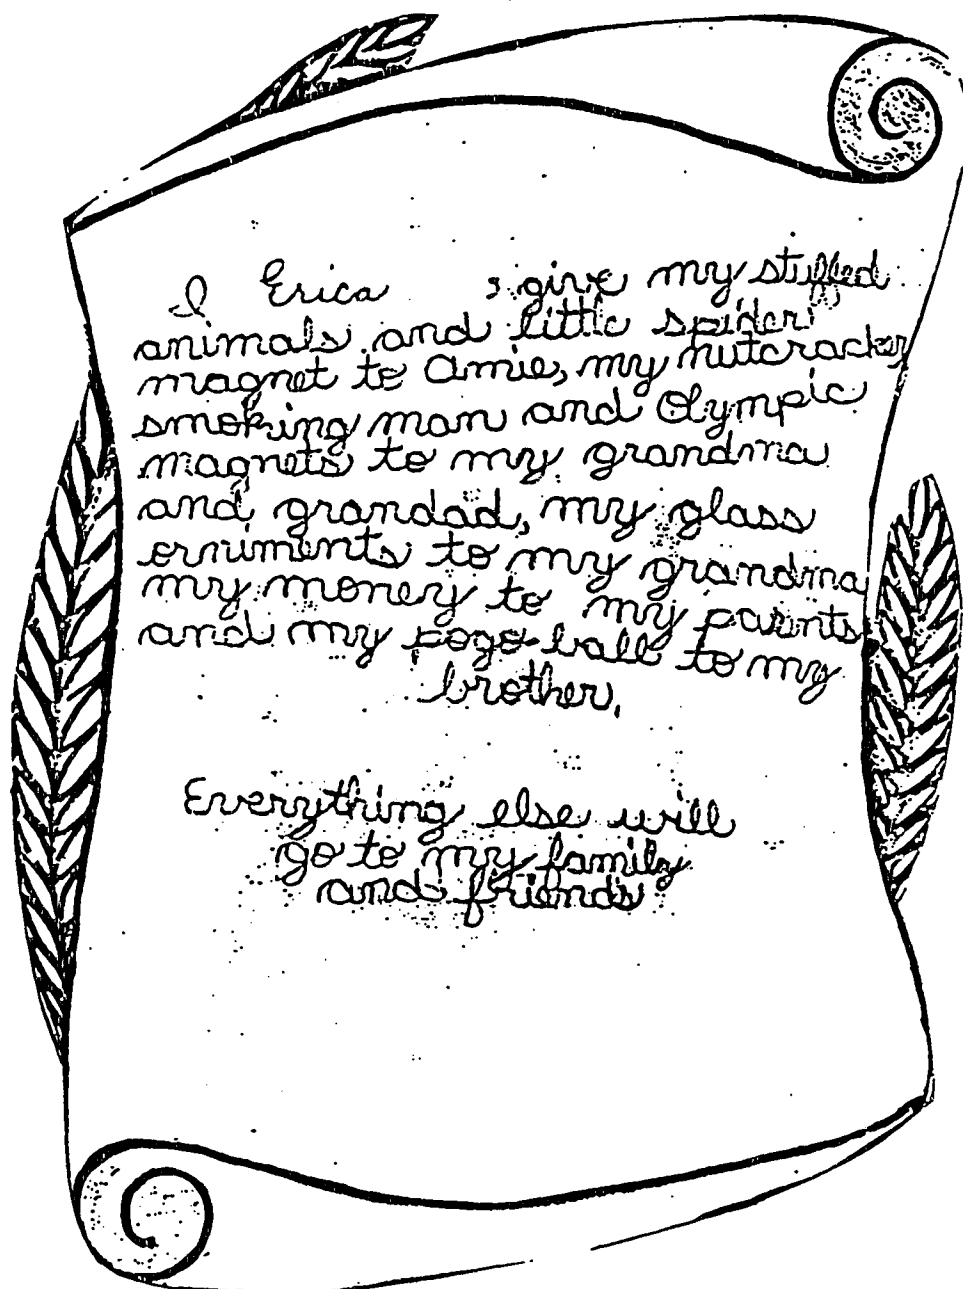 I Erica , give my stuffed
animals and little spider
magnet to Amie, my nutcracker,
smoking man and Olympic
magnets to my grandma
and grandad, my glass
orniments to my grandma
my money to my parints
and my pogo ball to my
brother.
Everything else will
go to my family
and friends